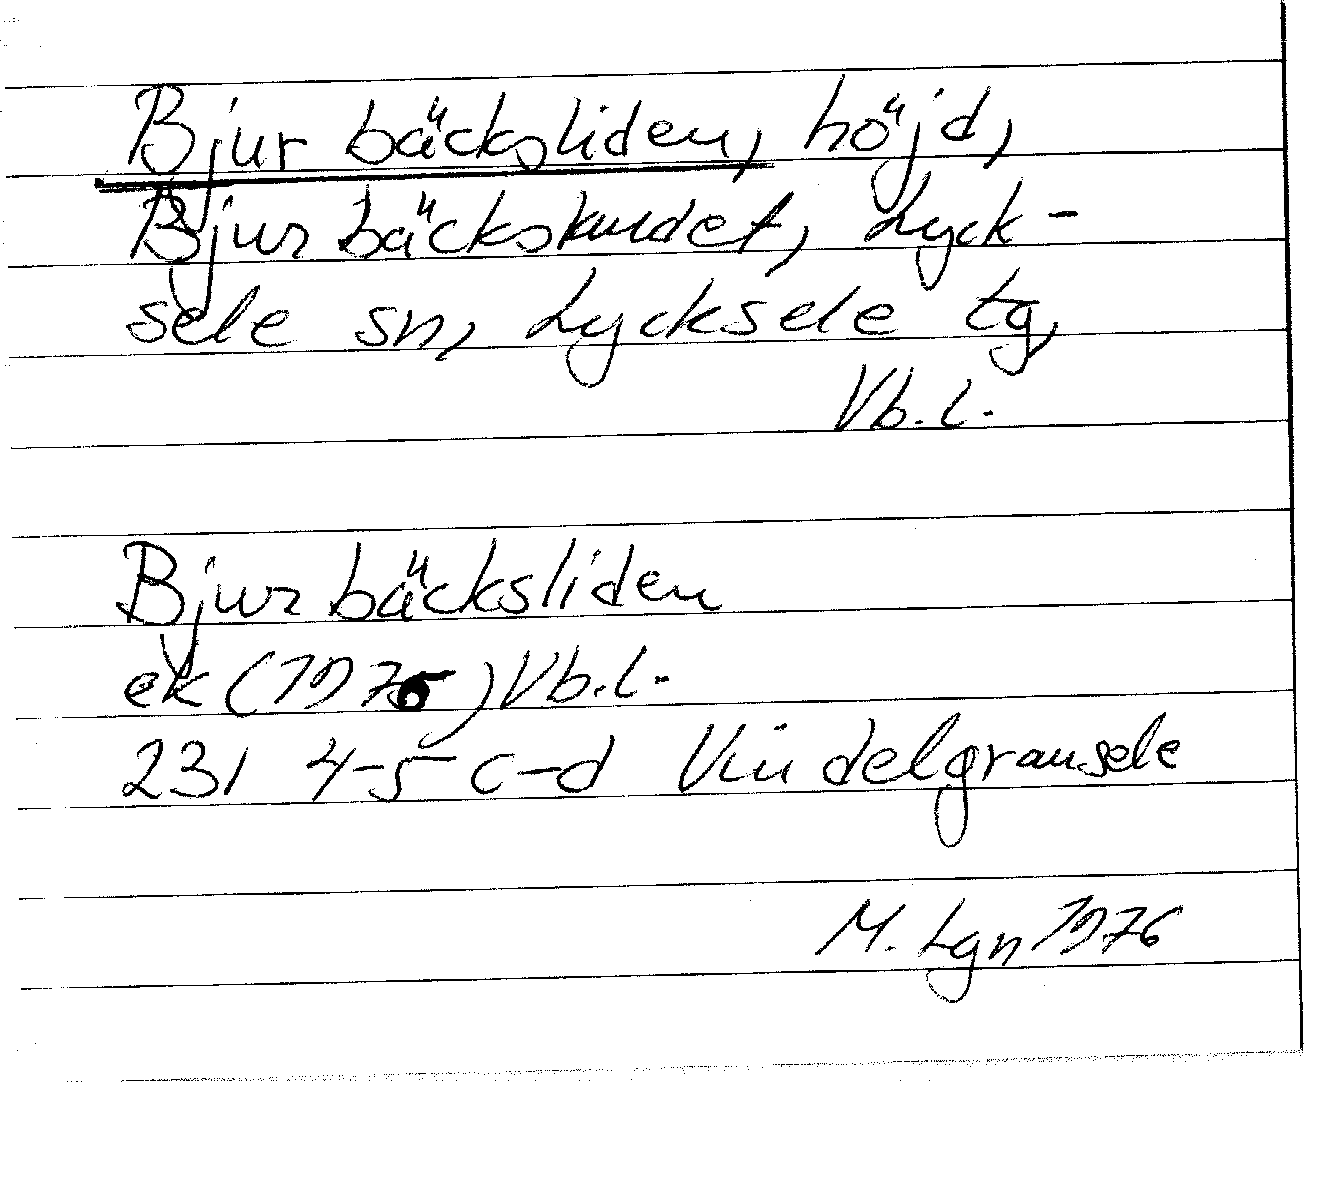 Bjurbäcksliden, höjd,
Bjurbäckskudet, Lyck-
sele sn, Lycksele tg,
Vb.l.
Bjurbäcksliden
ek (1976) Vb.l.
231 4-5 c-d Vindelgransele
M. Lgn 1976